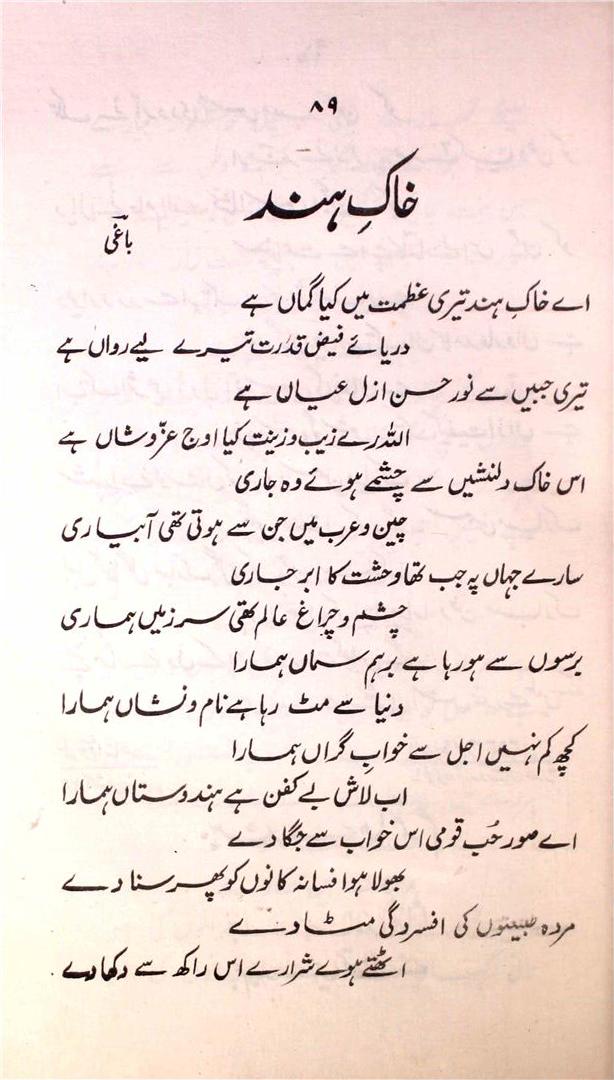 ۸۹
خاکِ ہند
باغی
اے خاکِ ہند تیری عظمت میں کیا گماں ہے
دریائے فیض قدرت تیرے لیے رواں ہے
تیری جبیں سے نور حسن ازل عیاں ہے
اللہ رے زیب و زینت کیا اوج عزّ و شاں ہے
اس خاک دلنشیں سے چشمے ہوئے وہ جاری
چین و عرب میں جن سے ہوتی تھی آبیاری
سارے جہاں پہ جب تھا وحشت کا ابر جاری
چشم و چراغ عالم تھی سرزمیں ہماری
برسوں سے ہو رہا ہے برہم سماں ہمارا
دنیا سے مٹ رہا ہے نام و نشاں ہمارا
کچھ کم نہیں اجل سے خوابِ گراں ہمارا
اب لاش بے کفن ہے ہندوستاں ہمارا
اے صور حُب قومی اس خواب سے جگا دے
بھولا ہوا افسانہ کانوں کو پھر سنا دے
مردہ طبیعتوں کی افسردگی مٹا دے
اٹھتے ہوے شرارے اس راکھ سے دکھا دے